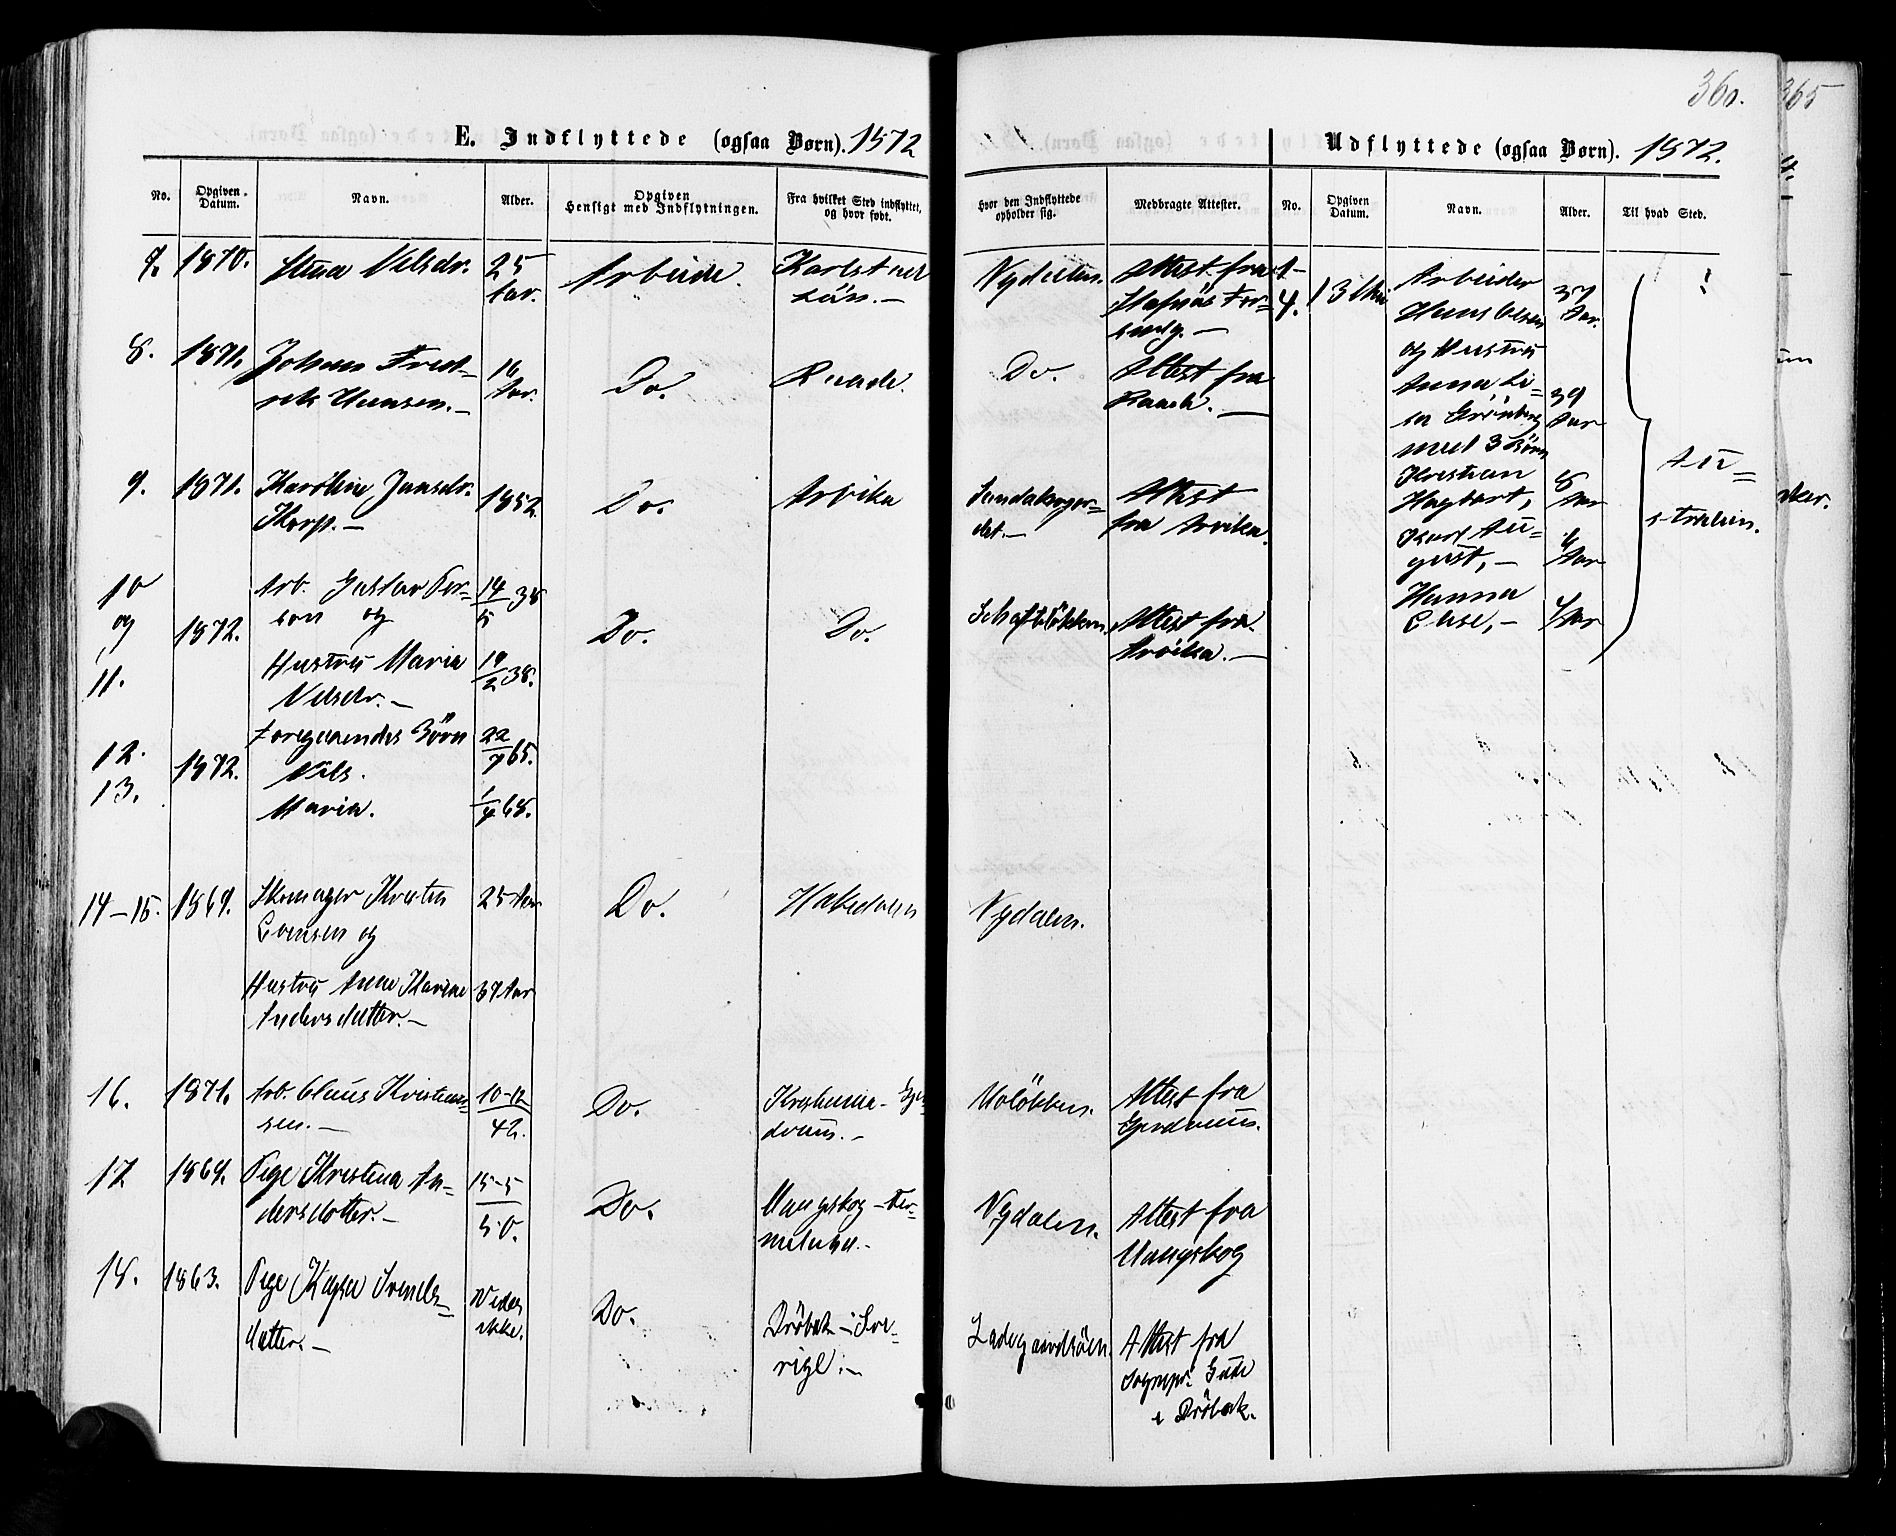 360.
365
E. Indflyttede (ogsaa Børn). 1872
Udflyttede (ogsaa Børn). 1872.
No.
Opgiven Datum.
Navn.
Alder.
Opgiven Hensigt med Indflytningen.
Fra hvilket Sted indflyttet, og hvor født.
Hvor den Indflyttede opholder sig.
Medbragte Attester.
No.
Opgiven Datum.
Navn.
Alder.
Til hvad Sted.
7. 1870. Stina Nilsdr. 25 Aar. Arbeide. Karlstad Län. — Nydalen. Attest fra
8. 1871. Johan Fred-
rik Hansen. — 16 Aar. Do. Raade. Do. Attest fra
Raade. —
9. 1871. Karoline Jansdr. 1852 Do. Arvika Attest
fra Arvika.
10 og 11. 1872. Arb. Gustav Per-
son og 14/5 38 Do. Do. Attest fra
Arvika. —
Hustru Maria 19/2 38.
Nilsdr. —
12. 13. 1872. Foregaaendes Børn
Nils. 22/7 65.
Maria. 1/4 68.
14—15. 1869. Skomager Kristen 25 Aar Do. Hakedalen Nydalen.
Evensen og
Hustru Anne Karine 37 Aar
Andersdatter. —
16. 1871. Arb. Claus Kristian-
sen. — 10-12/42. Do. Attest fra
Gjerdrum.
17 1869. Pige Kristina An-
dersdotter. — 15-5/50. Do. Mangskog — Nydalen. Attest fra
Mangskog
18. 1863. Pige Kajsa Svends-
datter. — Vides ikke. Do. Drøbak — i Sve-
rige. — Ladegaardsøen. Attest fra
Sognepr. i Drøbak.
1-
4. 13 Mai Arbeider
Hans Olsen 37 Aar.
og Hustru
Anna Li-
sa Grönberg 39 Aar
med 3 Børn
Kristian
Hagbart, 8 Aar
Karl Au-
gust, — 4 Aar
Hanna
Elise, — 1 Aar
Au-
stralien.